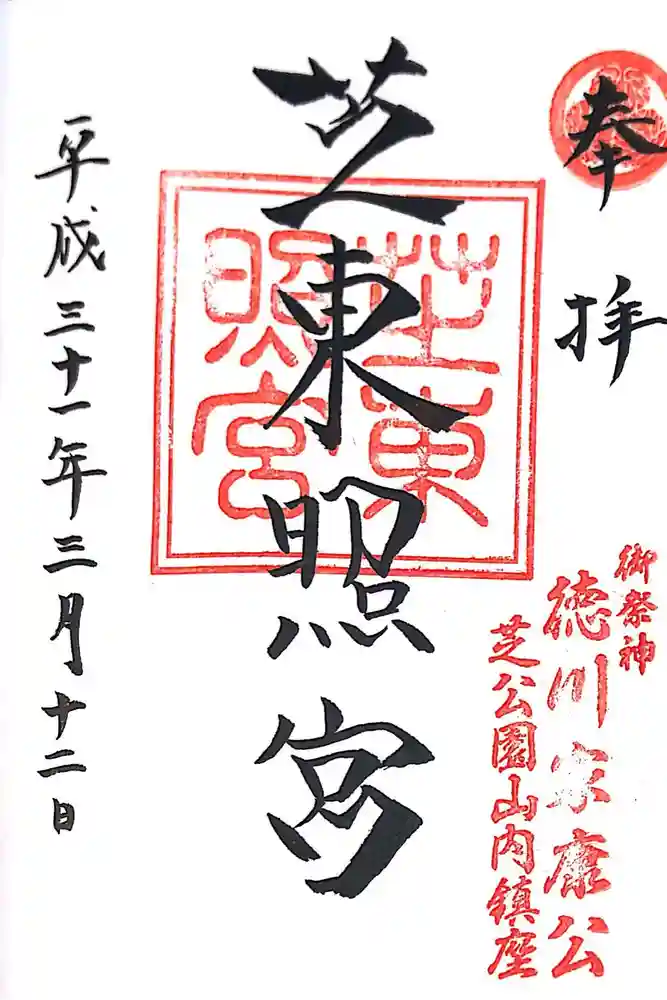 奉拝
御祭神
徳川家康公
芝公園山内鎮座
芝東照宮
芝東
照宮
平成三十一年三月十二日